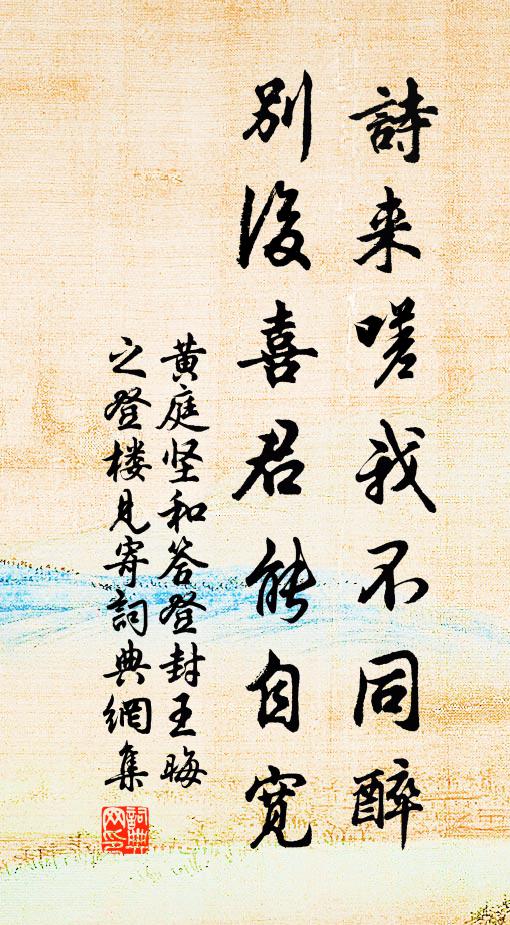 詩来嗟我不同醉
別後喜君能自寬
黄庭坚和答登封王晦
之登楼见寄詞典網集
詞典网印